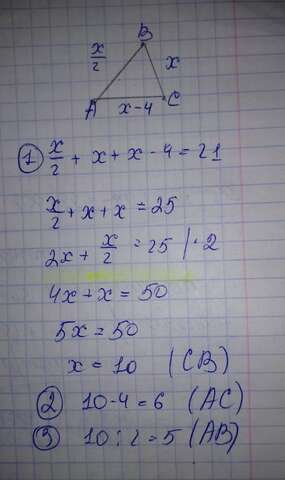 B
x/2 x
A x-4 C
① x/2 + x + x - 4 = 21
x/2 + x + x = 25
2x + x/2 = 25 | · 2
4x + x = 50
5x = 50
x = 10 (CB)
② 10 - 4 = 6 (AC)
③ 10 : 2 = 5 (AB)